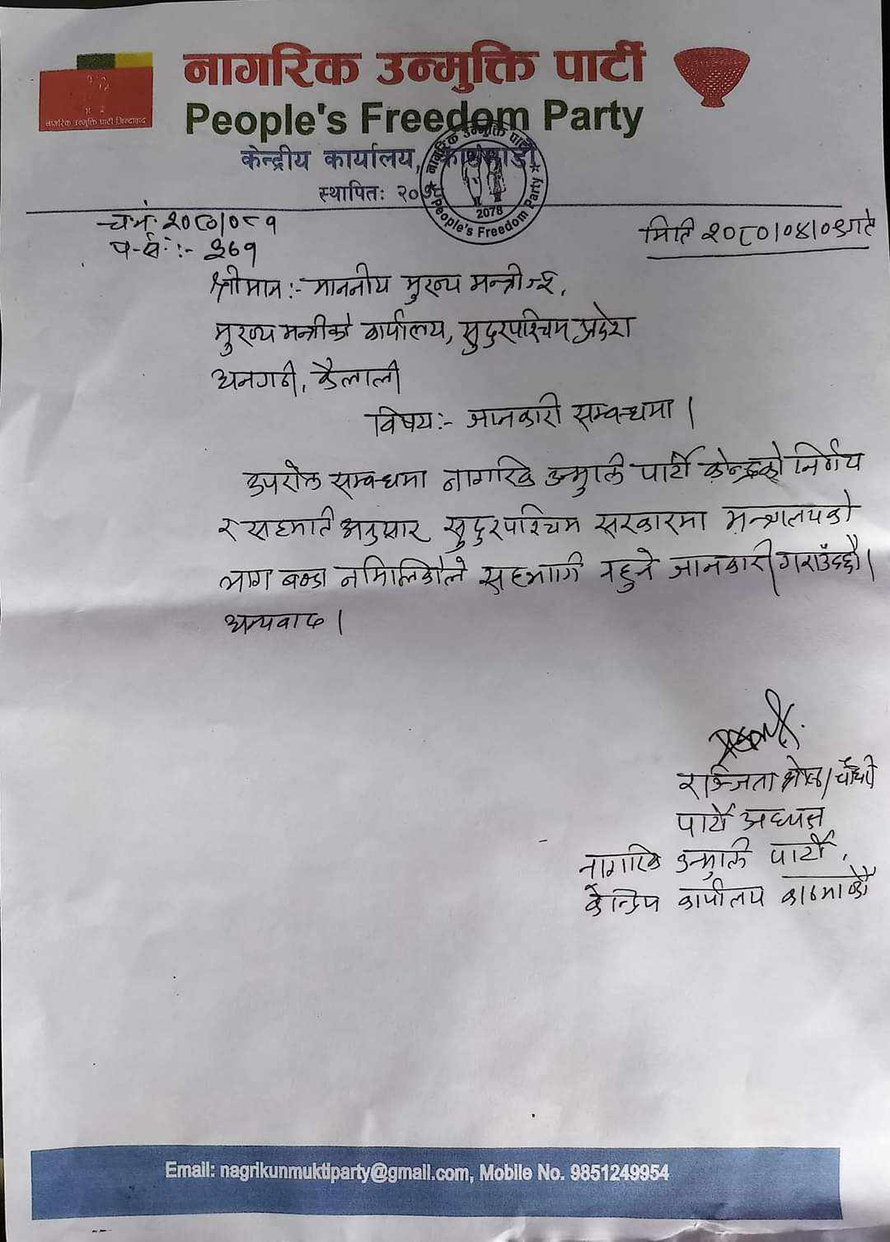 नागरिक उन्मुक्ति पार्टी
नागरिक उन्मुक्ति पार्टी जिन्दावाद
People's Freedom Party
केन्द्रीय कार्यालय, काठमाडौं
स्थापितः २०७
नागरिक उन्मुक्ति पार्टी
2078
People's Freedom Party
च.नं. २०८०/०८१
प.सं.:- ३६१
मिति २०८०/०४/०९ गते
श्रीमान :- माननीय मुख्य मन्त्रीज्यू,
मुख्य मन्त्रीको कार्यालय, सुदुरपश्चिम प्रदेश
धनगढी, कैलाली
विषय:- जानकारी सम्बन्धमा ।
उपरोक्त सम्बन्धमा नागरिक उन्मुक्ति पार्टी केन्द्रको निर्णय
र सहमति अनुसार सुदुरपश्चिम सरकारमा मन्त्रालयको
भाग बण्डा नमिलेकोले सहभागी नहुने जानकारी गराउँदछौं।
धन्यवाद ।
रञ्जिता श्रेष्ठ/चौधरी
पार्टी अध्यक्ष
नागरिक उन्मुक्ति पार्टी,
केन्द्रिय कार्यालय काठमाडौं
Email: nagrikunmuktiparty@gmail.com, Mobile No. 9851249954